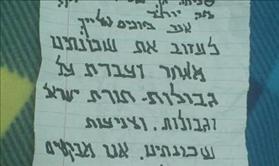 אנו פונים אלייך
לעזוב את שכונתינו
מאחר ועברת על
גבולות - תורת ישראל
וגבולות, וצניעות
שכונתינו. אנו מבקשים